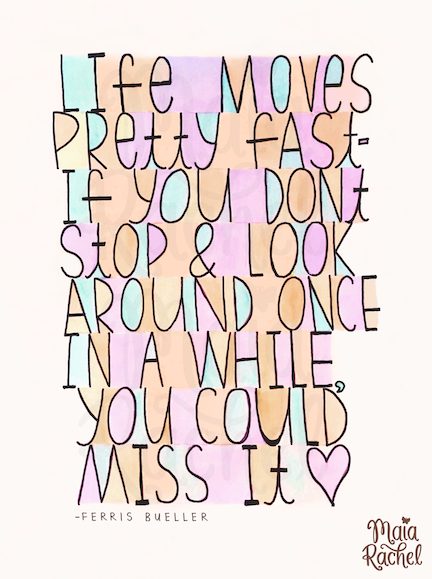 LIfe MOVES
PRettY fASt-
If YOU DONt
StOP & LOOK
AROUND ONCE
IN A WHILE,
YOU COULD
MISS It
-FERRIS BUELLER
Maia
Rachel